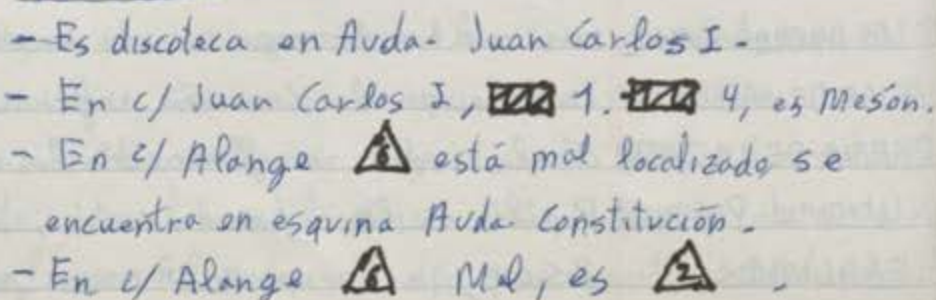 - Es discoteca en Avda. Juan Carlos I.
- En c/ Juan Carlos I, 1. 4, es Mesón.
- En c/ Alange 6 está mal localizado se
encuentra en esquina Avda. Constitución.
- En c/ Alange 6 Mal, es 2.